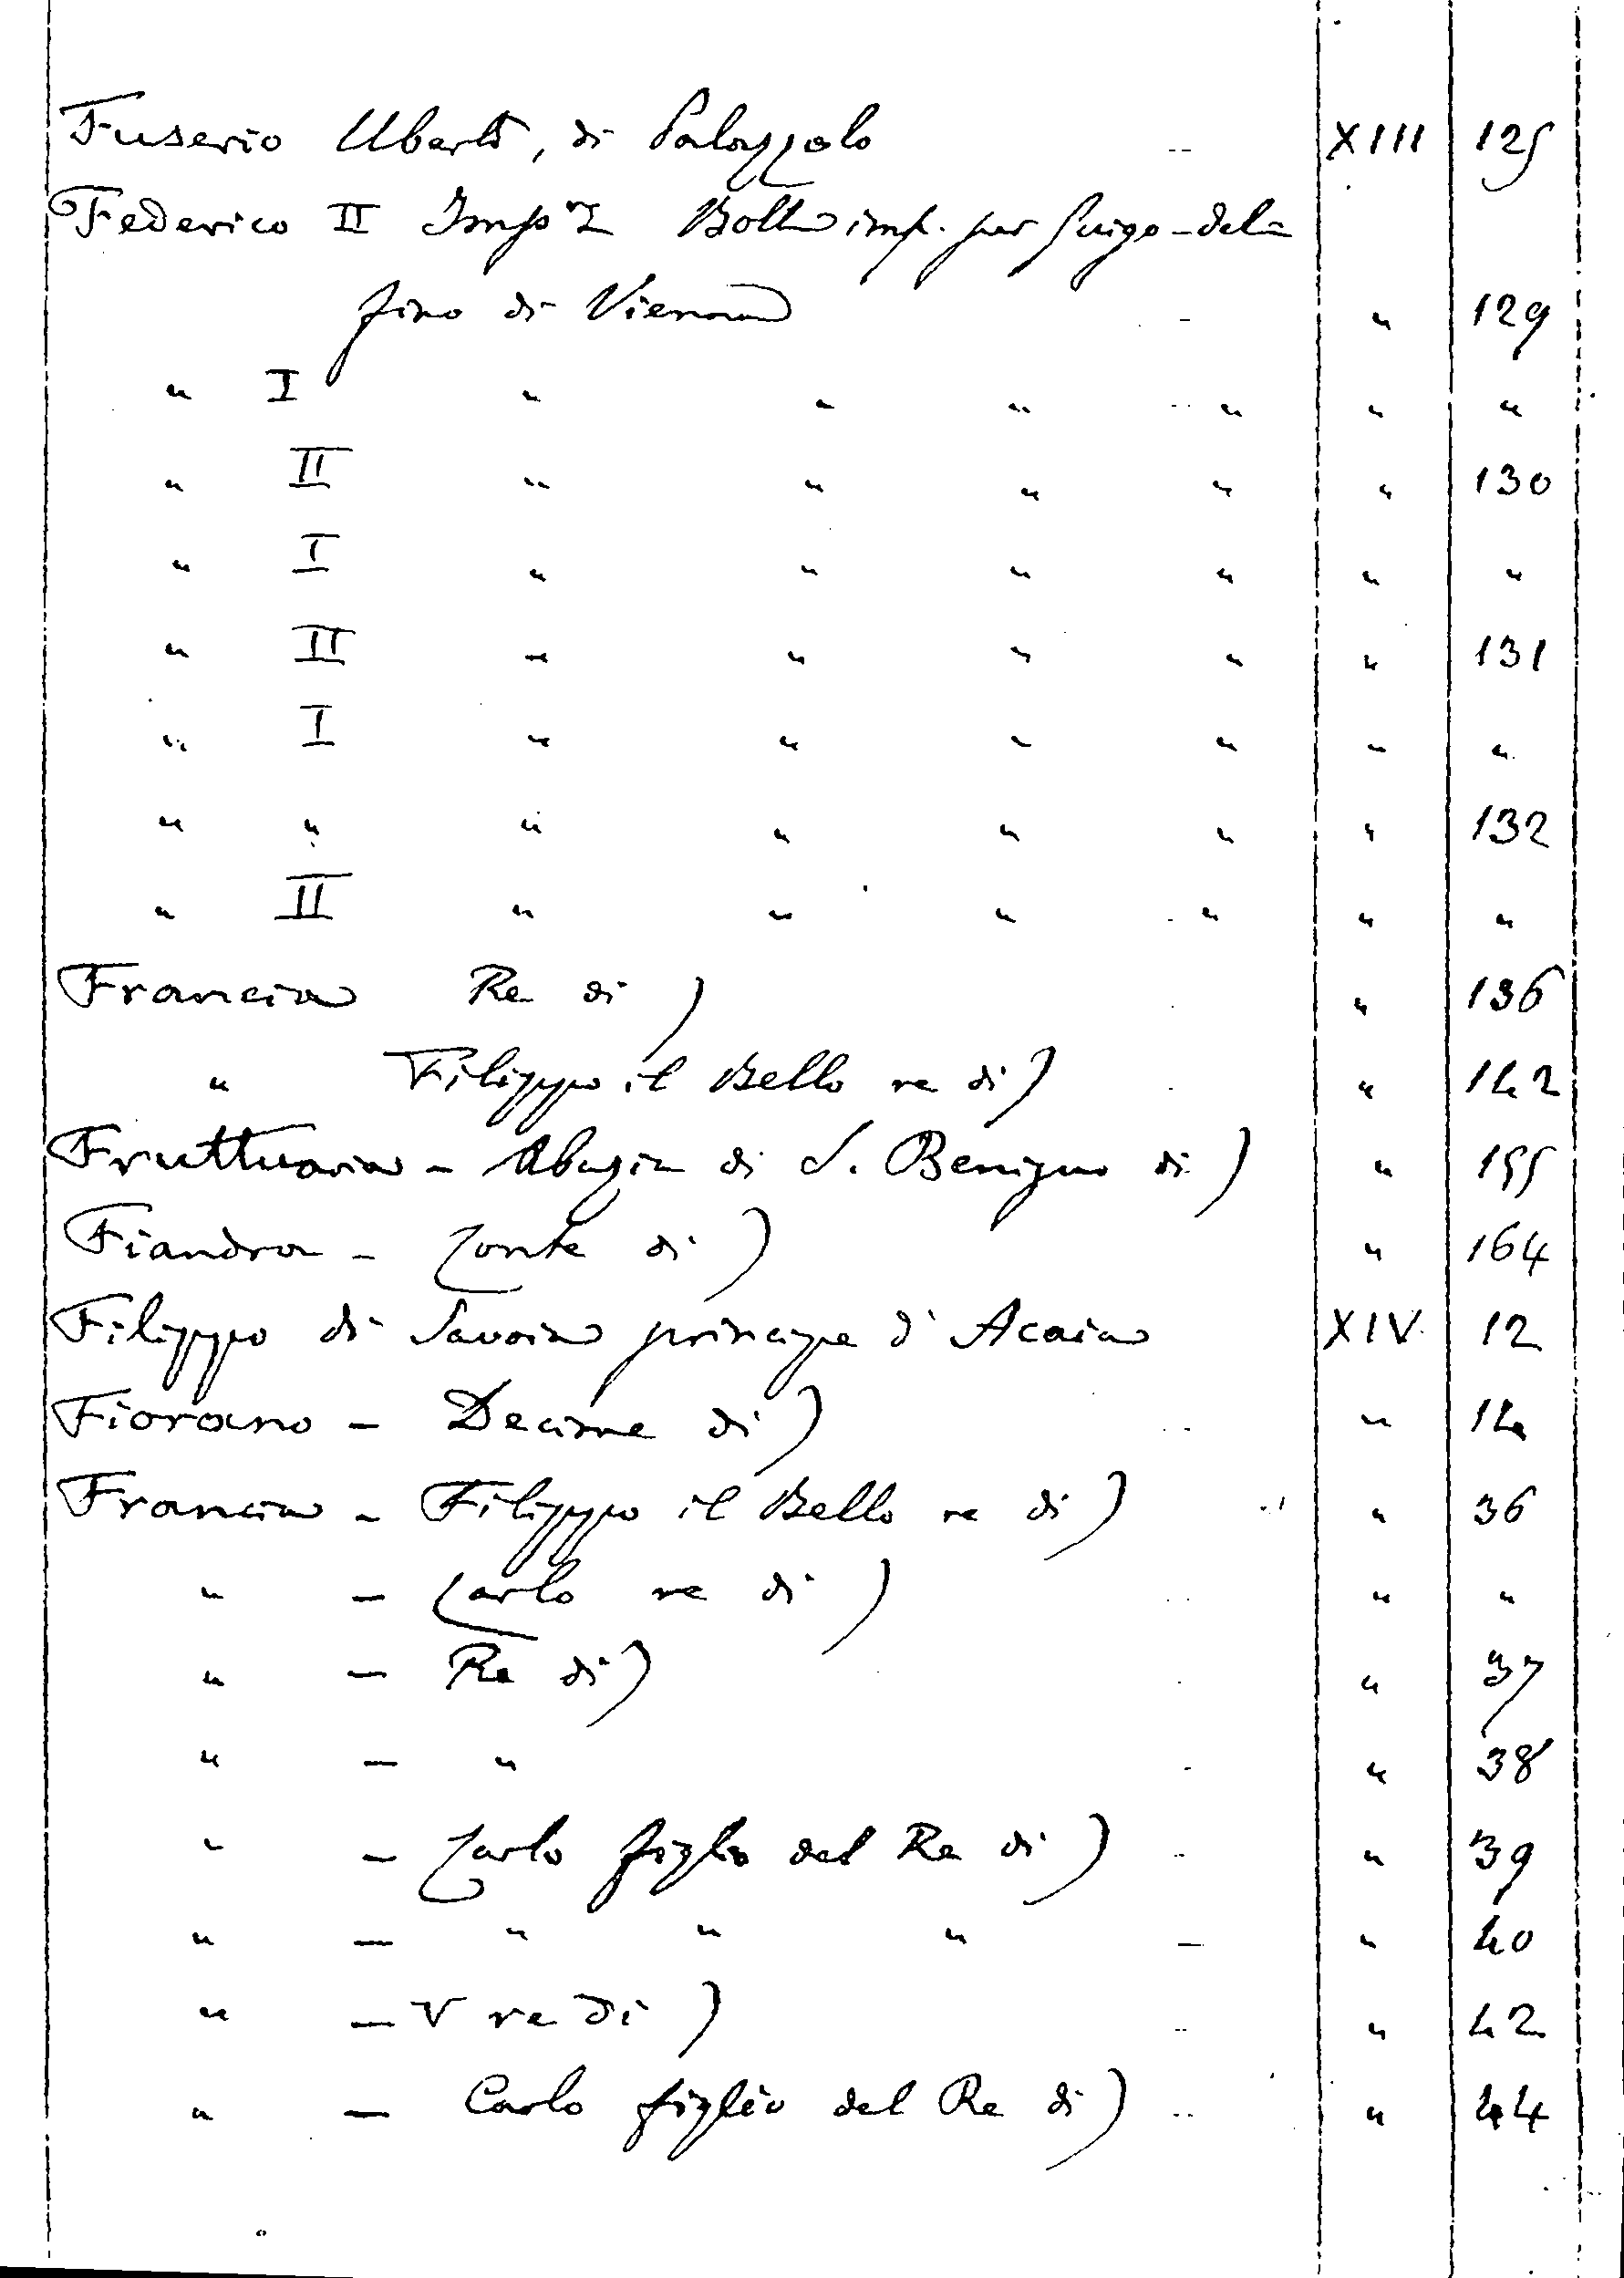 Fuserio Uberto, di Palazzolo -- XIII 125
Federico II Imp. Bolla imp. per Guigo-del=
fino di Vienna - " 129
" I " " " " " "
" II " " " " " 130
" I " " " " " "
" II " " " " " 131
" I " " " " " "
" " " " " " " 132
" II " " " " " "
Francia Re di) " 136
" Filippo il Bello re di) " 142
Fruttuaria - Abazia di S. Benigno di) " 155
Fiandra - Conte di) " 164
Filippo di Savoia principe d'Acaia XIV 12
Fiorano - Decime di) " 14
Francia - Filippo il Bello re di) " 36
" - Carlo re di) " "
" - Re di) " 37
" - " - " 38
" - Carlo figlio del Re di) - " 39
" - " " " - " 40
" - V re di) -- " 42
" - Carlo figlio del Re di) -- " 44